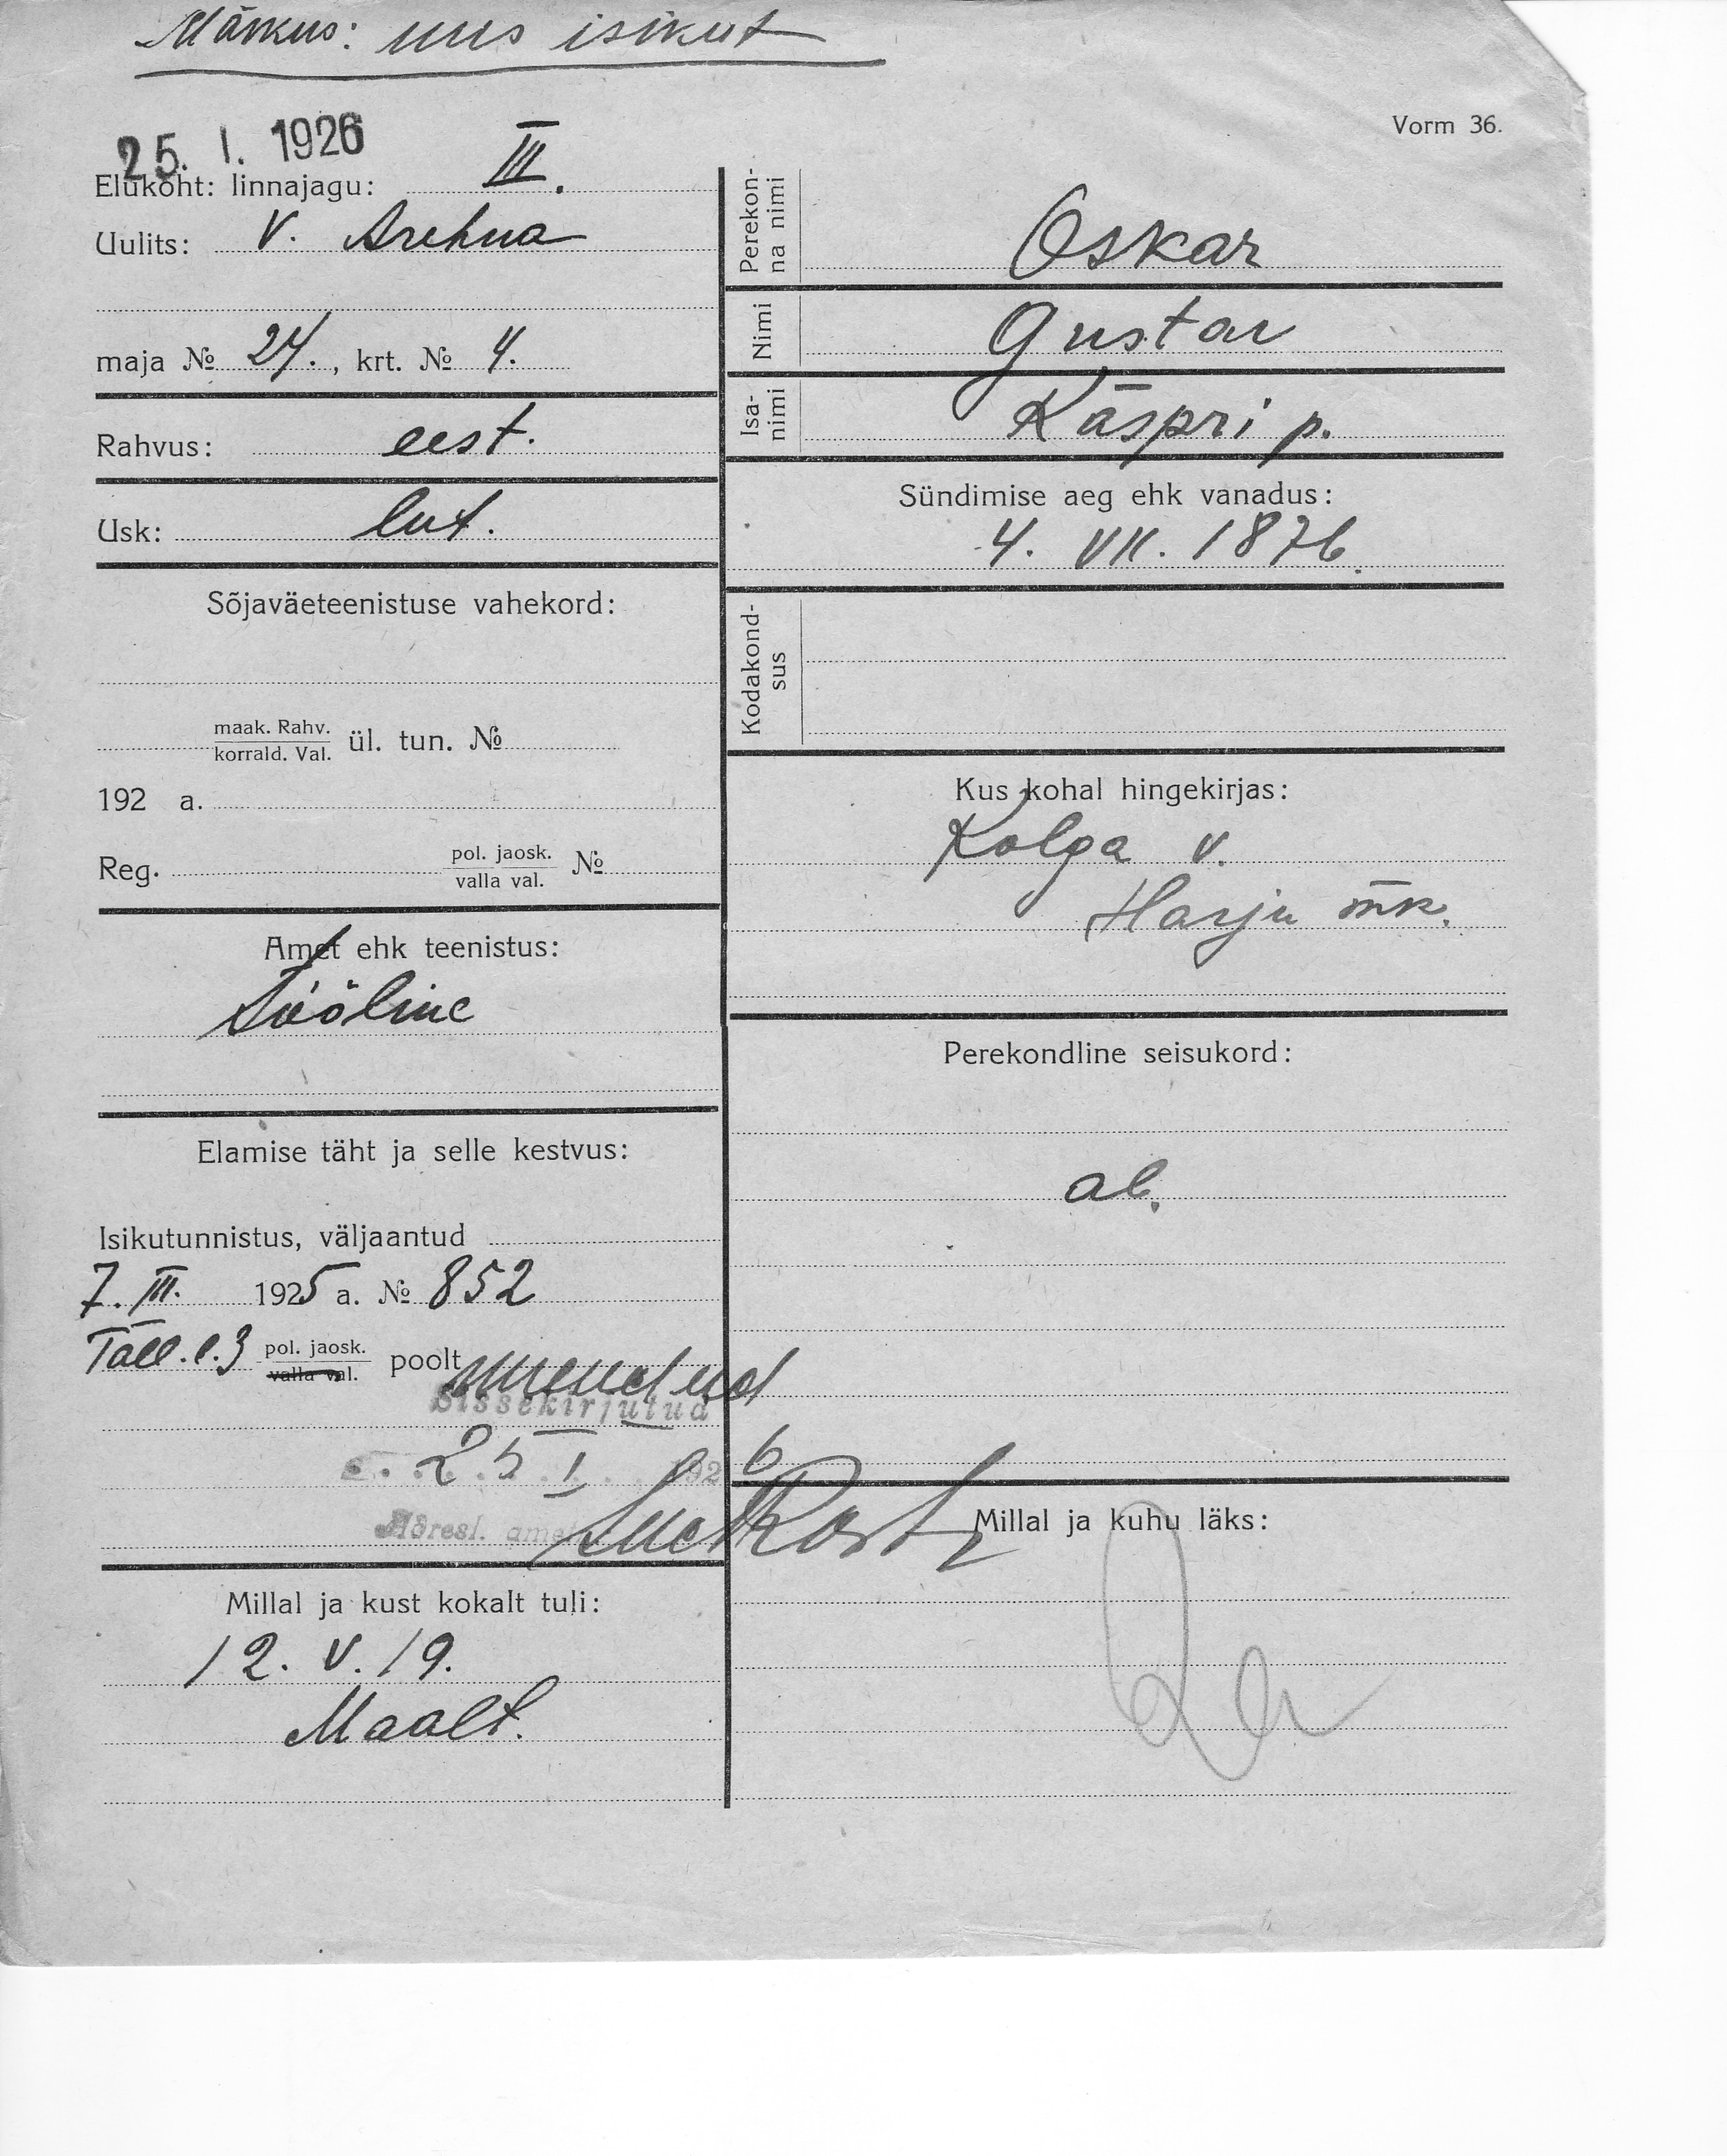 Märkus: uus isikut
Vorm 36.
25. I. 1926
Elukoht: linnajagu: III.
Uulits: V. Arehna
maja № 24., krt. № 4.
Rahvus: eest.
Usk: lut.
Sõjaväeteenistuse vahekord:
maak. Rahv.
korrald. Val. ül. tun. №
192 a.
Reg. pol. jaosk.
valla val. №
Amet ehk teenistus:
Tööline
Elamise täht ja selle kestvus:
Isikutunnistus, väljaantud
7. III. 1925 a. № 852
Tall. l. 3 pol. jaosk.
valla val. poolt
uuendud
Sissekirjutud
25 I 1926
Adresl.
Millal ja kust kokalt tuli:
12. V. 19.
Maalt.
Perekonna nimi Oskar
Nimi Gustav
Isanimi Käspri p.
Sündimise aeg ehk vanadus:
4. VII. 1876.
Kodakondsus
Kus kohal hingekirjas:
Kolga v.
Harju mk.
Perekondline seisukord:
ab.
Millal ja kuhu läks: